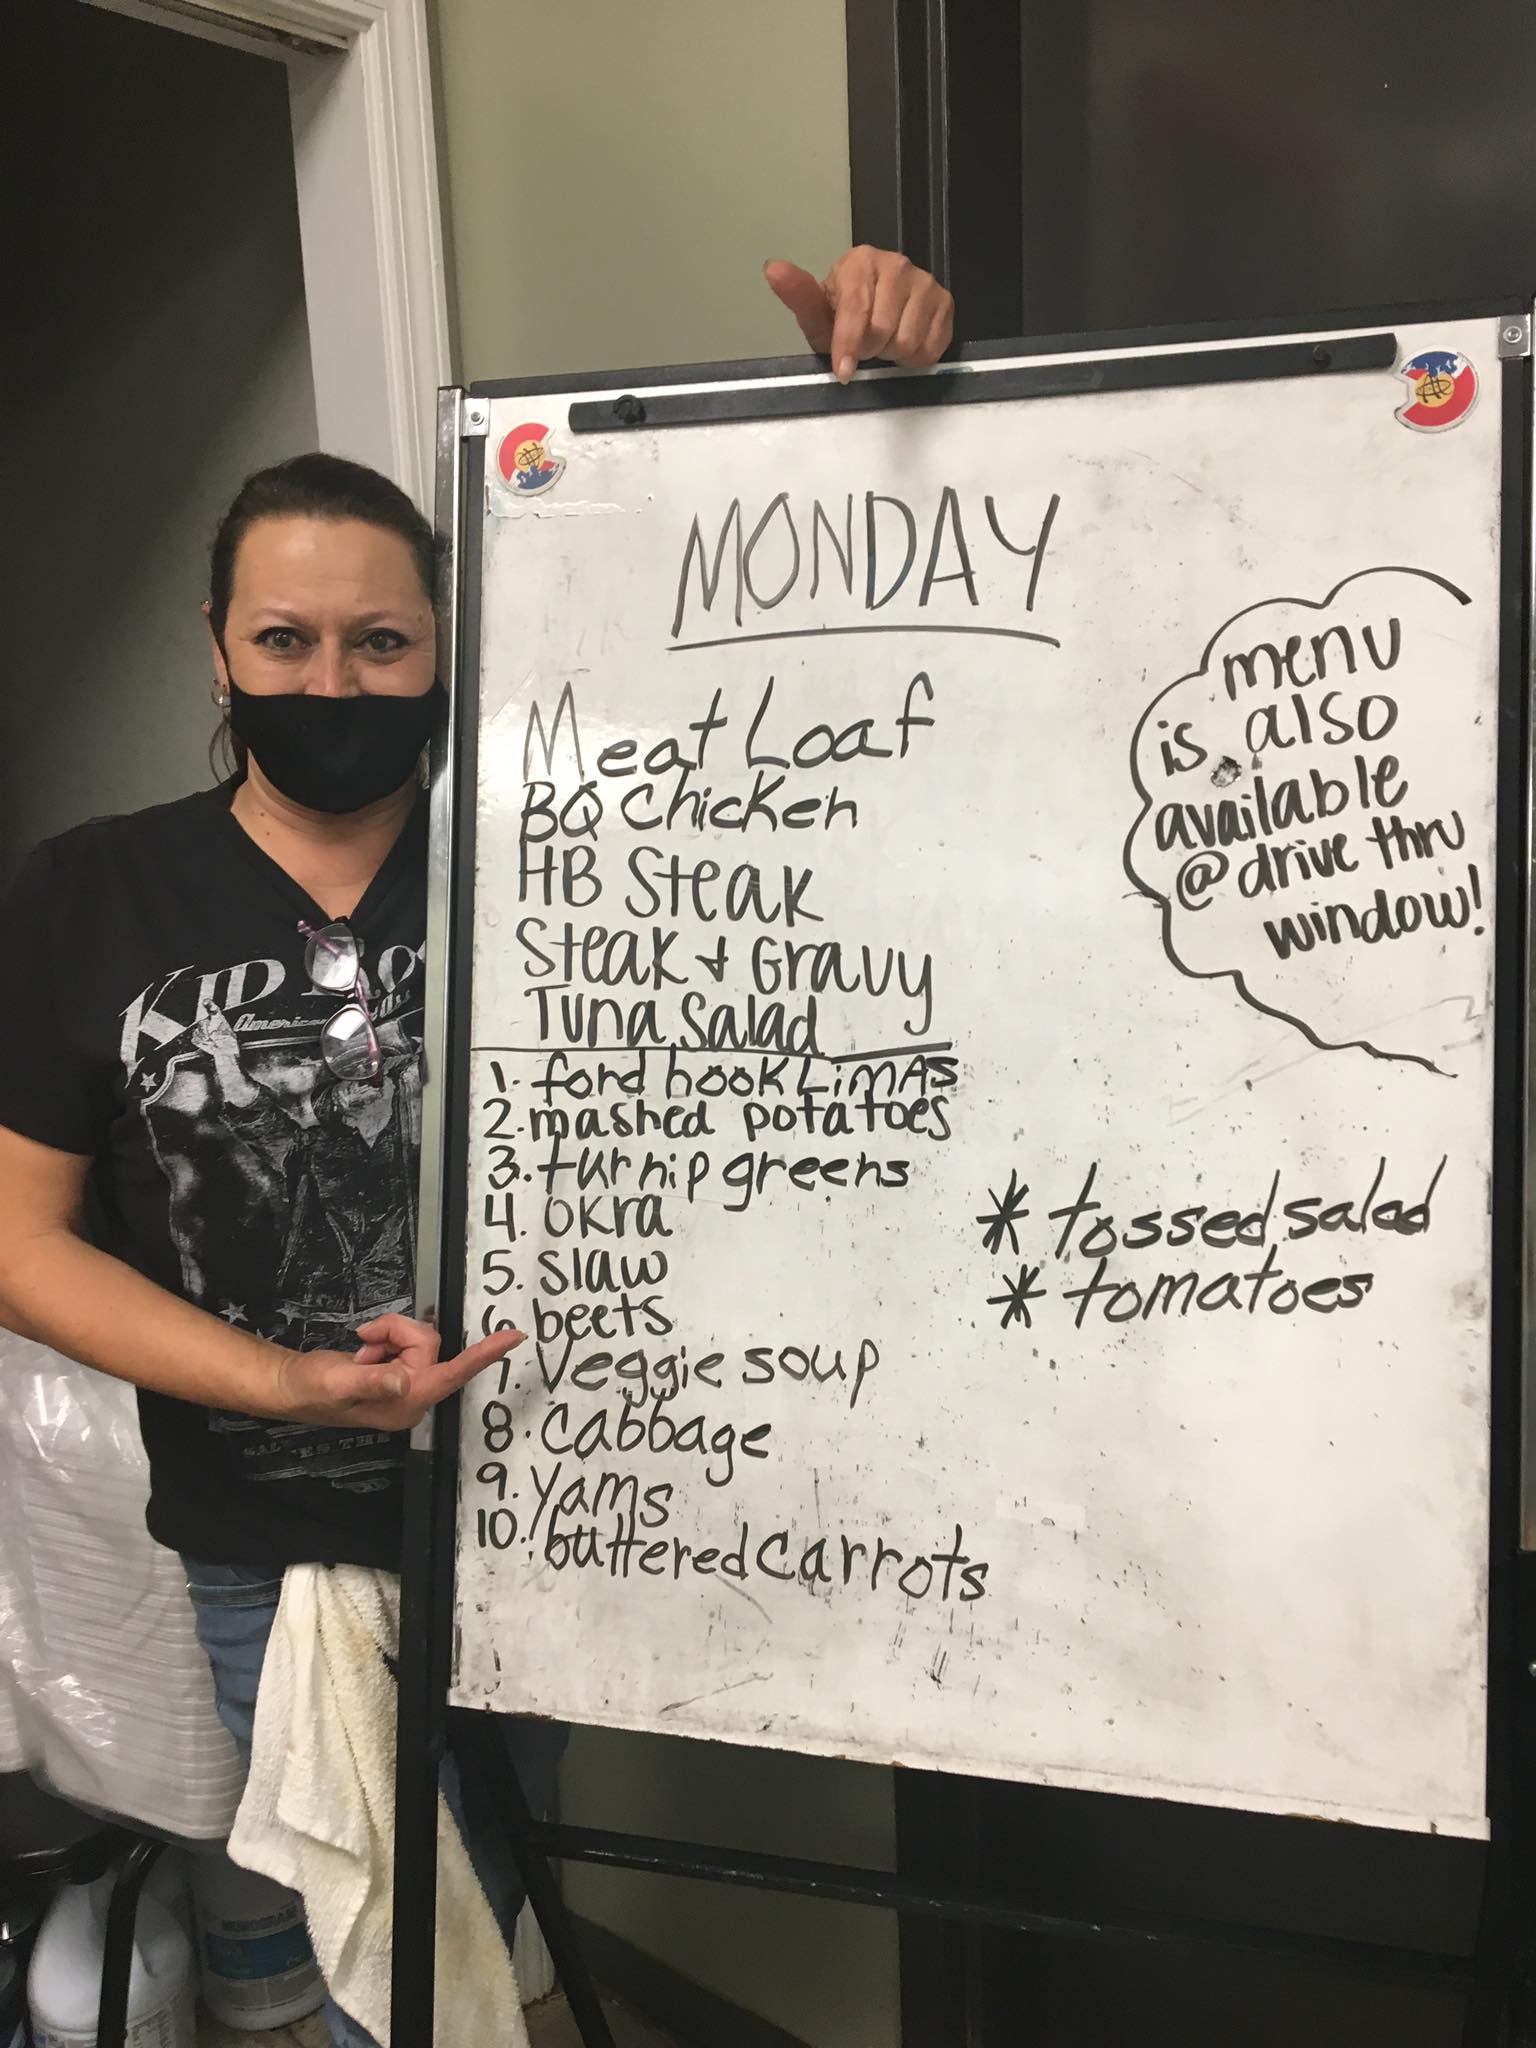 MONDAY
Meat Loaf
BQ Chicken
HB Steak
Steak & Gravy
Tuna Salad
1. ford hook LiMAS
2. mashed potatoes
3. turnip greens
4. okra
5. slaw
6. beets
7. Veggie soup
8. Cabbage
9. yams
10. buttered carrots
menu
is also
available
@ drive thru
window!
* tossed salad
* tomatoes
KID
American